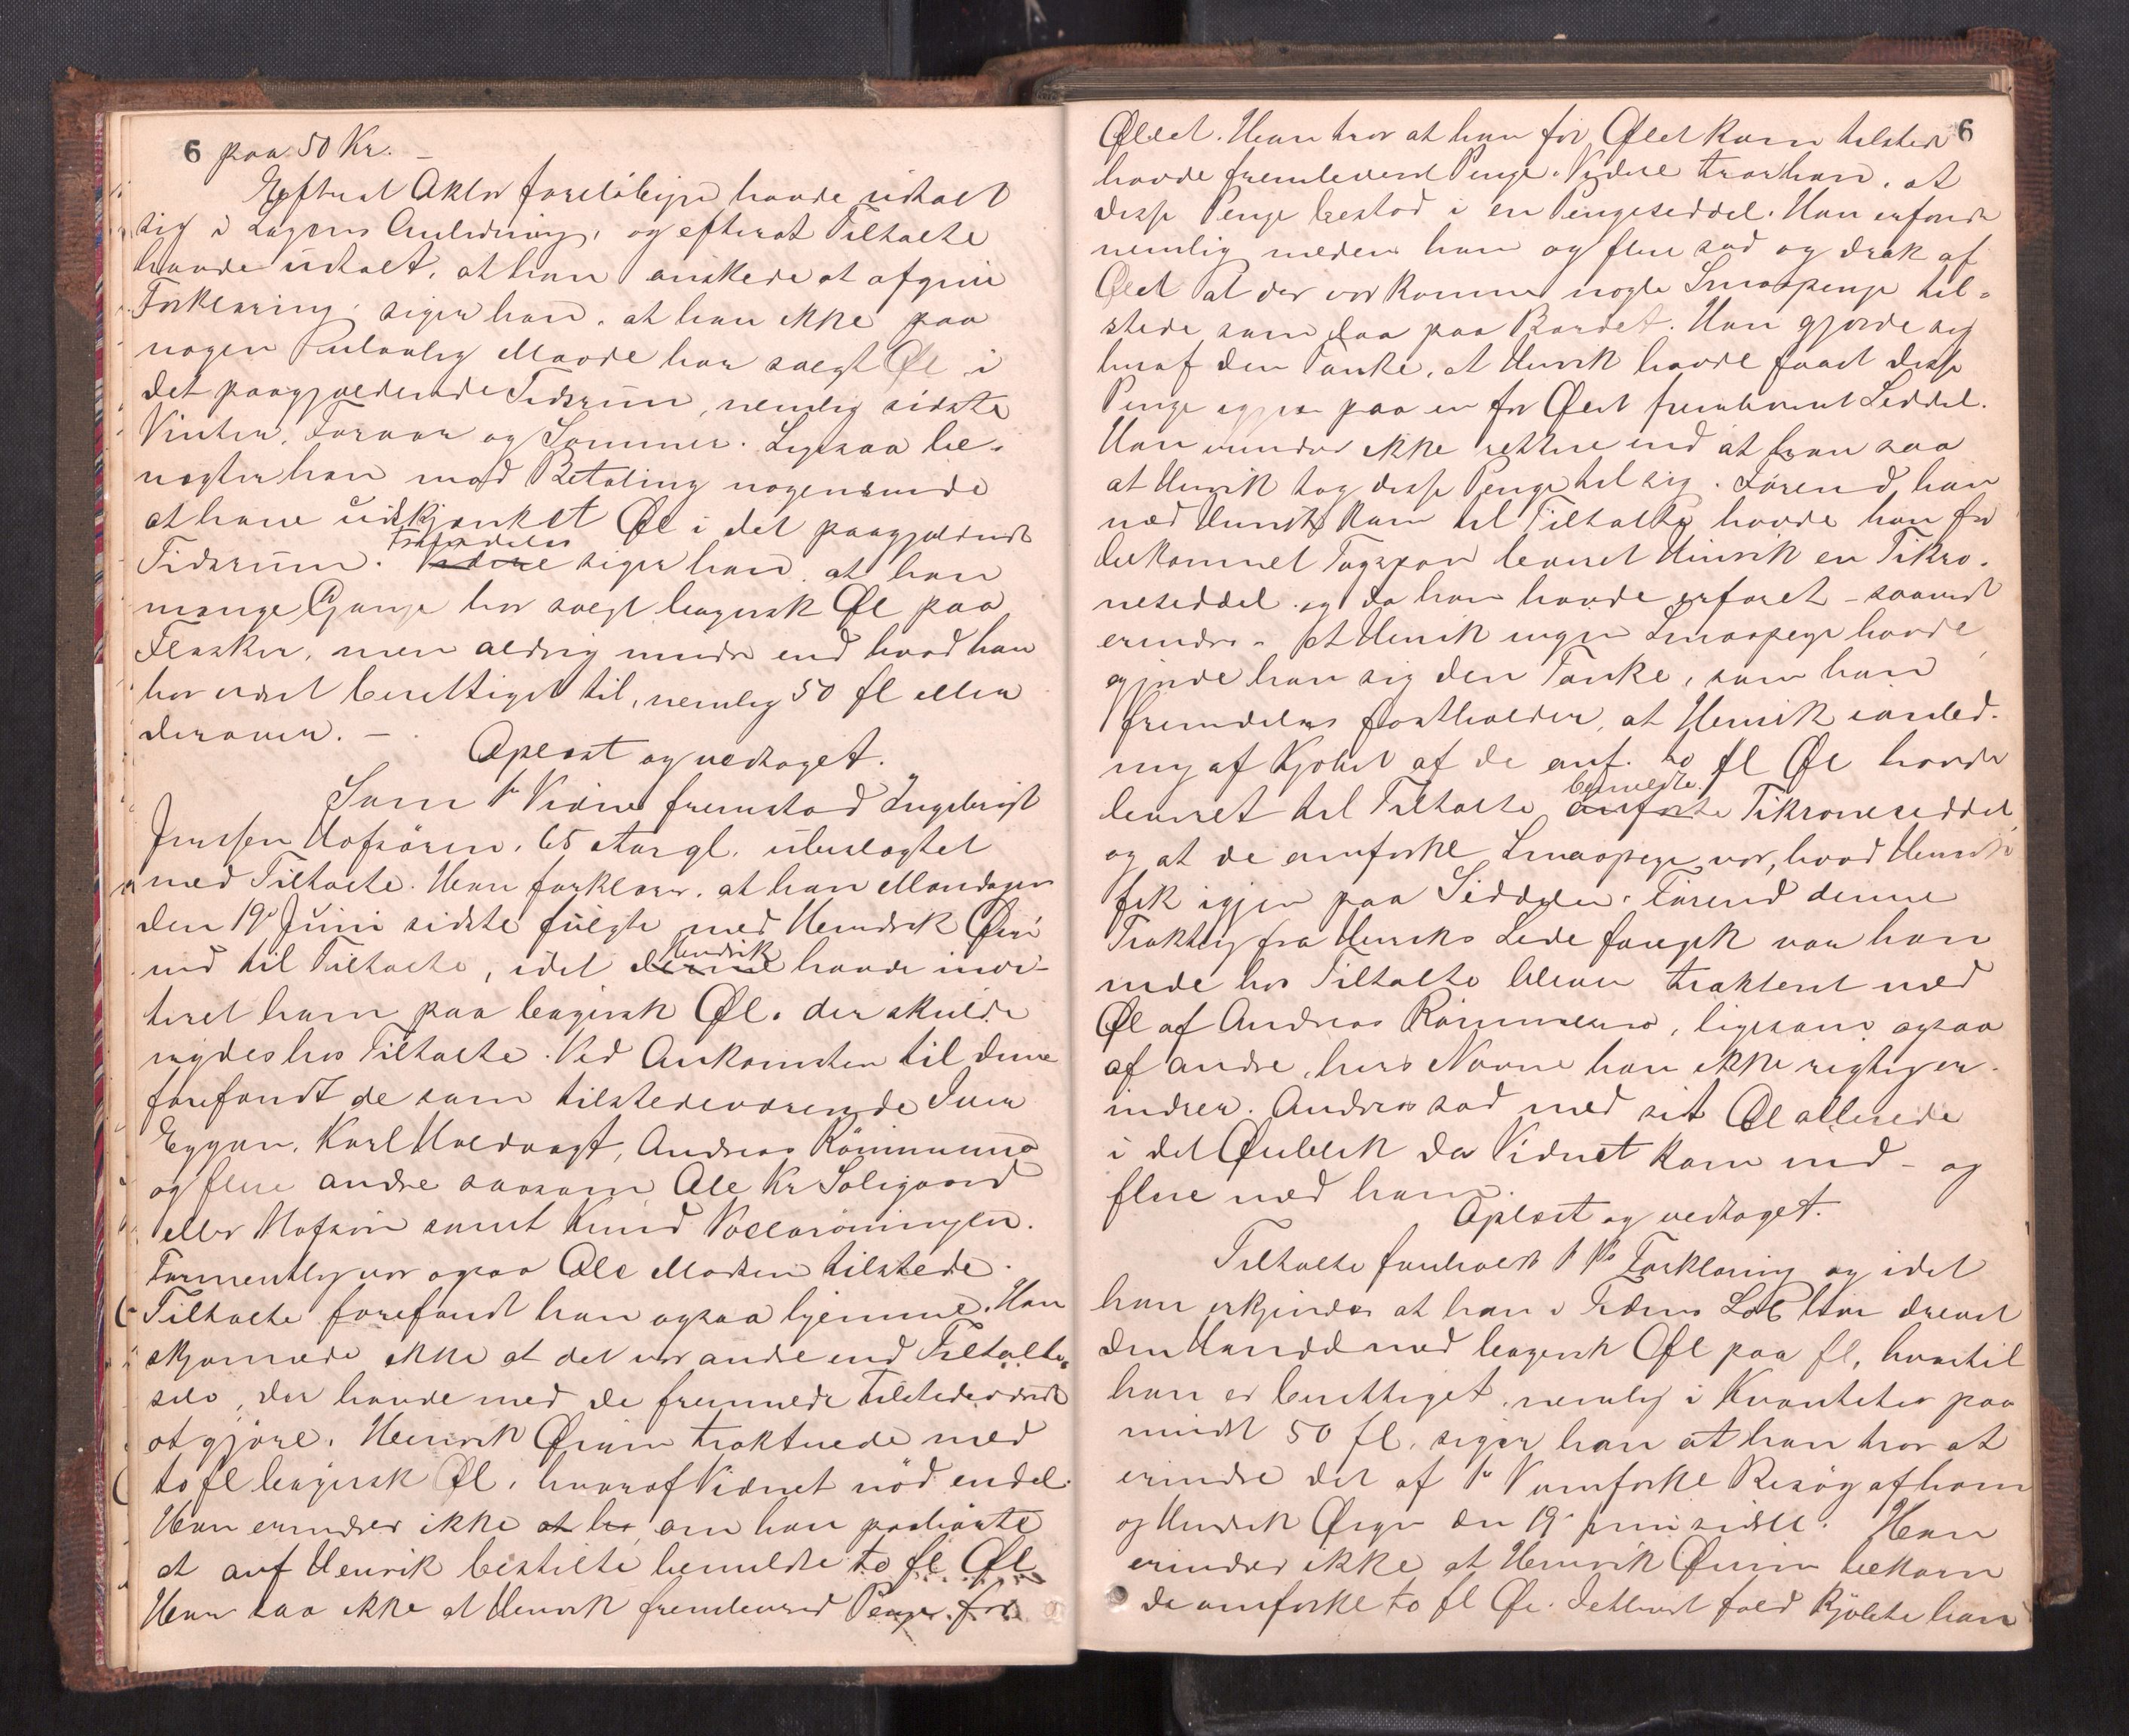 6 paa 50 Kr. –
Efterat Aktor foreløbigen havde udtalt
sig i Sagens Anledning, og efterat Tiltalte
havde udtalt, at han ønskede at afgive
Forklaring, siger han, at han ikke paa
nogen ulovlig Maade har solgt Øl i
det paagjældende Tidsrum, nemlig sidste
Vinter, Foraar og Sommer. Ligesaa be-
nægter han mod Betaling nogensinde
at have udskjænket Øl i det paagjældende
Tidsrum. Fremdeles siger han, at han
mange Gange har solgt bayersk Øl paa
Flasker, men aldrig mindre end hvad han
har været berettiget til, nemlig 50 fl eller
derover. –
Oplæst og vedtaget.
Som 1te Vidne fremstod Ingebrigt
Jensen Hofsøren, 65 Aar gl. ubeslægtet
med Tiltalte. Han forklarer, at han Mandagen
den 19de Juni sidste fulgte med Hendrik Øien
ind til Tiltalte, idet denne Hendrik havde invi-
teret ham paa bayersk Øl, der skulde
nydes hos Tiltalte. Ved Ankomsten til denne
forefandt de som tilstedeværende Iver
Eggan, Karl Holdvagt, Andreas Rømmumo
og flere andre saasom Ole Kr Soligaard
eller Hofsøien samt Knud Vollarøningen.
Formentlig var ogsaa Ole Madsen tilstede.
Tiltalte forefandt han ogsaa hjemme. Han
skjønnede ikke at det var andre end Tiltalte
selv, der havde med de fremmede Tilstedeværende
at gjøre. Henrik Øien trakterede med
to fl bayersk Øl, hvoraf Vidnet nød endel.
Han erindrer ikke at ha om han paahørte
at anf Henrik bestilte bemeldte to fl Øl
Han saa ikke at Henrik fremleverede Penge for
Øllet. Han tror at han før Ølet kom tilstede 6
havde fremleveret Penge. Videre tror han, at
disse Penge bestod i en Pengeseddel. Han erfarede
nemlig meden han og flere sad og drak af
Ølet at der var kommet nogle Smaapenge til-
stede som laa paa Bordet. Han gjorde sig
heraf den Tanke, at Henrik havde faaet disse
Penge igjen paa en for Ølet fremleveret Seddel.
Han erindrer ikke rettere end at han saa
at Henrik tog disse Penge til sig. Førend han
med Henrik kom til Tiltalte havde han for
bekommet Tagspon leveret Henrik en Tikro-
neseddel og da han havde erfaret – saavidt
erindres – at Henrik ingen Smaapenge havde,
gjorde han sig den Tanke, som han
fremdeles fastholder, at Henrik i anled-
ning af Kjøbet af de anf. to fl Øl havde
leveret til Tiltalte anførte bemeldte Tikroneseddel,
og at de omforkl Smaapenge var, hvad Henrik
fik igjen paa Sedelen. Førend denne
Traktering fra Henriks Side foregik var han
inde hos Tiltalte bleven trakteret med
Øl af Andreas Rømmumo, ligesom ogsaa
af andre, hvis Navne han ikke rigtig er-
indrer. Andreas sad med sit Øl allerede
i det Øieblik da Vidnet kom ind – og
flere med ham.
Oplæst og vedtaget.
Tiltalte foreholdt 1 Vs Forklaring og idet
han erkjender at han i Tidens Løb har drevet
den Handel med bayersk Øl paa fl, hvortil
han er berettiget, nemlig i Kvantiteter paa
mindst 50 fl, siger han at han tror at
erindre det af 1te V omforkl Besøg af ham
og Hendrik Øien den 19. juni sidstl. Han
erindrer ikke at Henrik Øien bekom
de omforkl to fl Øl. Ialfald kjøbte han